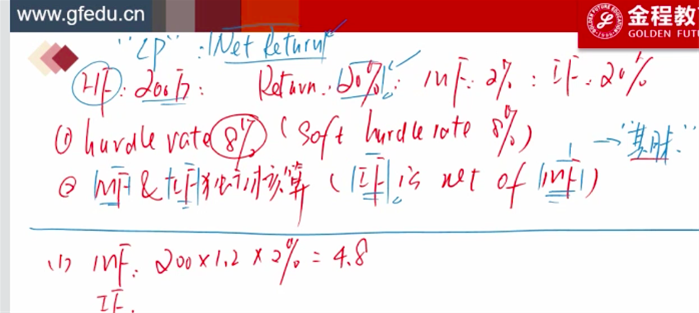 www.gfedu.cn
金程教
GOLDEN FUTU
"LP" : Net Return
HF: 200百: Return: 20%: MF: 2% : IF: 20%
① hurdle rate 8% (soft hurdle rate 8%)
② MF & IF 独立计核算 (IF is net of MF) → "其时"
(1) MF: 200×1.2×2% = 4.8
IF.